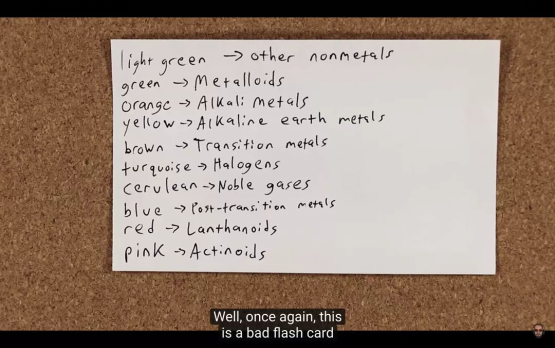 light green → other nonmetals
green → Metalloids
orange → Alkali metals
yellow → Alkaline earth metals
brown → Transition metals
turquoise → Halogens
cerulean → Noble gases
blue → Post-transition metals
red → Lanthanoids
pink → Actinoids
Well, once again, this
is a bad flash card